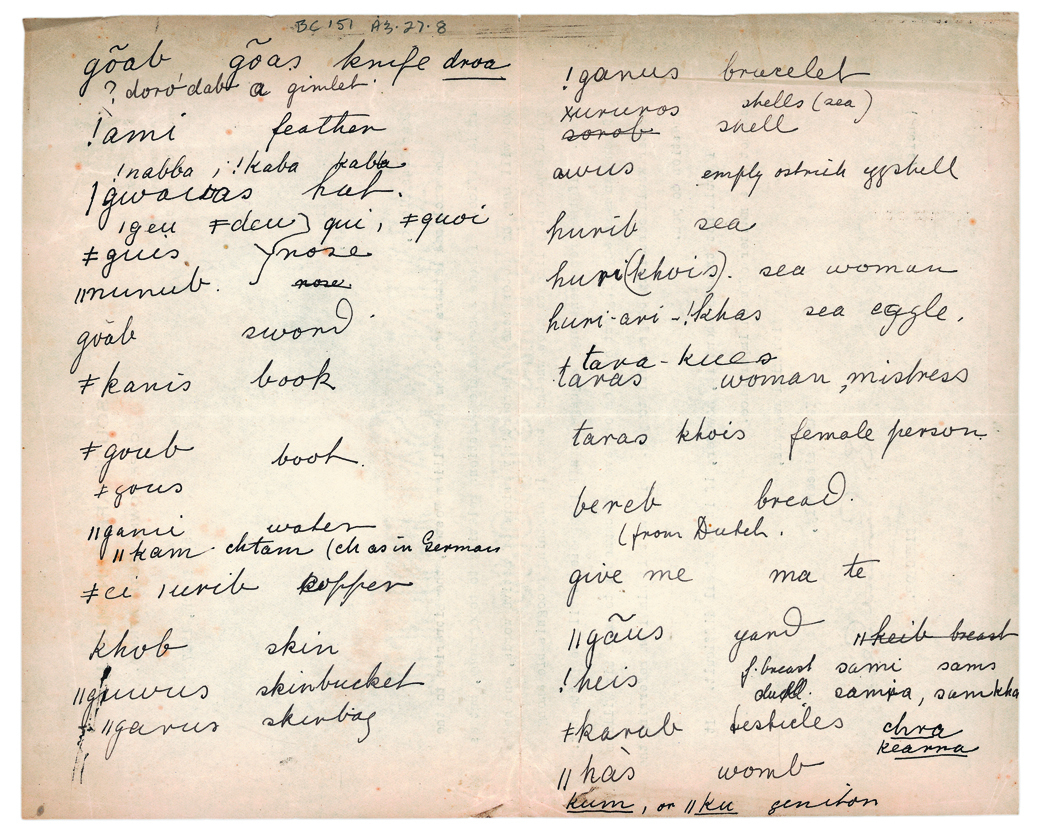 BC 151 A3.27.8
gõab gõas knife droa
? doro'dab a gimlet
!ami feather
!nabba ; !kaba kaba
hat.
ǀgeu ǂdeu } qui, ǂquoi
ǂguis } nose
ǁnunub. nose
gõab sword
ǂkanis book
ǂgoub boot.
ǂgous
ǁgami water
ǁkam chtam (ch as in German
ǂei ǀurib kopper
khob skin
ǁguwus skinbucket
ǁgarus skinbag
!ganus bracelet
xururos shells (sea)
sorob shell
awus empty ostrich eggshell
hurib sea
huri(khois). sea woman
huri-ari-!khas sea eggle.
ǂtara-kues
taras woman, mistress
taras khois female person.
bereb bread.
(from Dutch.
give me ma te
ǁgãus yard ǁkeib breast
!heis f. breast sami sams
samra, samkha
ǂkarab testicles chra
kearra
ǁhàs womb
kum, or ǁku geniton